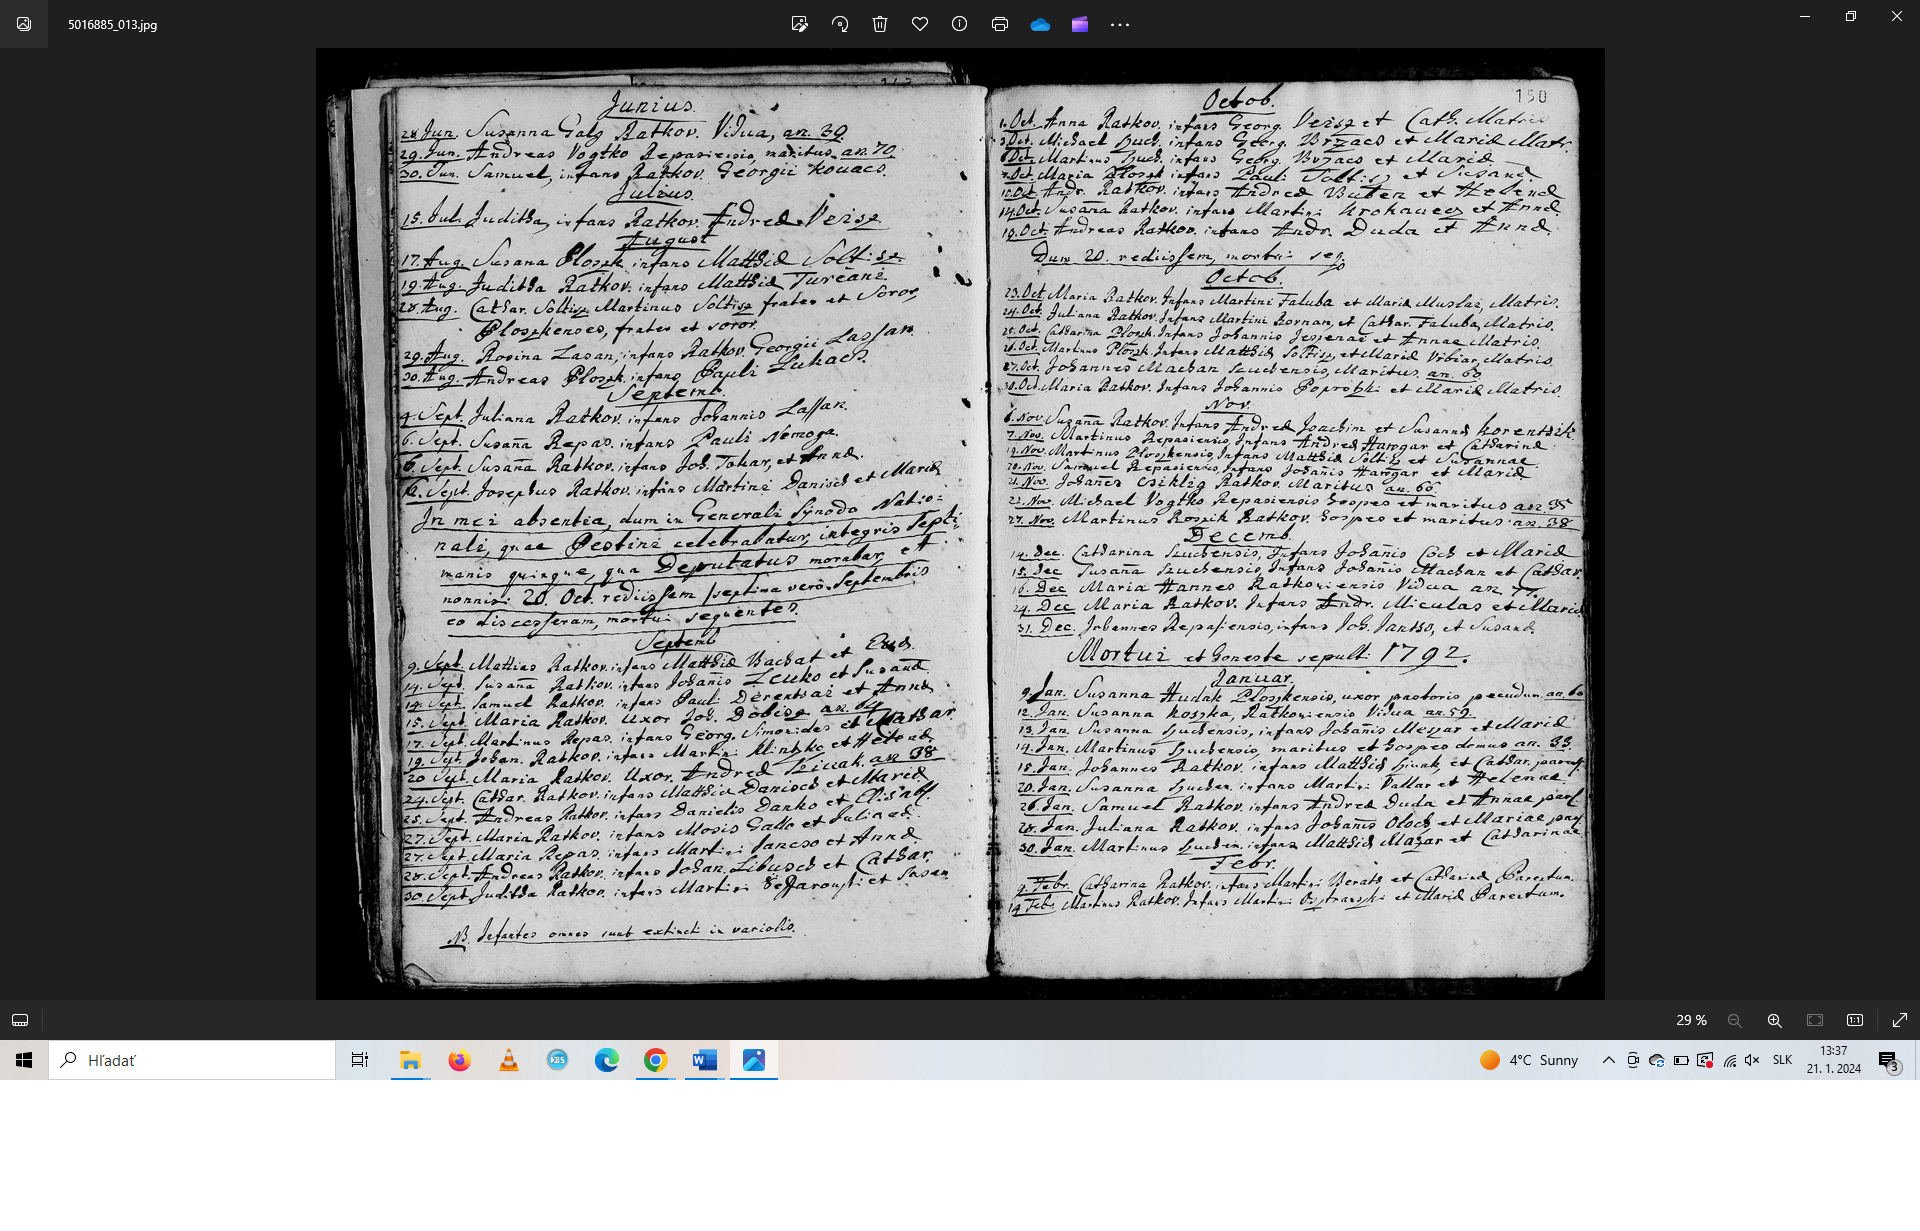 5016885_013.jpg
Junius.
28. Jun. Susanna Galg Ratkov. Vidua, an. 39.
29. Jun. Andreas Vogtko Repasiensis, maritus. an. 70.
30. Jun. Samuel, infans Ratkov. Georgii Kovacs.
Julius.
15. Jul. Juditha, infans Ratkov. Andreæ Versz
August
17. Aug. Susana Ploszk. infans Matthiæ Soltisz
19. Aug. Juditha Ratkov. infans Matthiæ Turcani.
28. Aug. Cathar. Soltisz Martinus Soltisz frater et Soror,
Ploszkenses, frater et soror.
29. Aug. Rosina Lasan, infans Ratkov. Georgii Lassan.
30. Aug. Andreas Ploszk. infans Pauli Lukacs.
Septemb.
4. Sept. Juliana Ratkov. infans Johannis Lassan.
6. Sept. Susaña Repas. infans Pauli Nemoga.
6. Sept. Susaña Ratkov. infans Joh. Tokar, et Annæ.
12. Sept. Josephus Ratkov. infans Martini Danisch et Mariæ
In mei absentia, dum in Generali Synodo Natio=
nali, quae Pestini celebrabatur, integris Septi-
manis quinque, qua Deputatus morabar, et
nonnisi 20. Oct. rediissem, septima vero Septembris
eo discesseram, mortui sequentes.
Septemb
9. Sept. Mathias Ratkov. infans Matthiæ Bachat et Evæ.
14. Sept. Susaña Ratkov. infans Johañis Zeuko et Susañæ
14. Sept. Samuel Ratkov. infans Pauli Derentsai et Annæ
15. Sept. Maria Ratkov. Uxor Joh. Dobisz an. 64
17. Sept. Martinus Repas. infans Georg. Simonides et Cathar.
19. Sept. Johan. Ratkov. infans Martini Klintsko et Helenæ.
20 Sept. Maria Ratkov. Uxor. Andreæ an. 38
24. Sept. Cathar. Ratkov. infans Matthiæ Danisch et Mariæ
25. Sept. Andreas Ratkov. infans Danielis Danko et Elisab.
27. Sept. Maria Ratkov. infans Mosis Gallo et Julianæ
27. Sept. Maria Repas. infans Martini Jancso et Annæ
28. Sept. Andreas Ratkov. infans Johan. Libusch et Cathar.
30. Sept. Juditha Ratkov. infans Martini et Susan
NB. Infantes omnes sunt extincti in variolis.
150
Octob.
1. Oct. Anna Ratkov. infans Georg. Versz et Cath. Matris
3. Oct. Michael Szuch. infans Georg. Brzacs et Mariæ Matr.
Oct. Martinus Szuch. infans Georg. Brzacs et Mariæ
Oct. Maria Ploszk infans Pauli Soltisz et Susanæ
10. Oct Andr. Ratkov. infans Andreæ Buten et Helenæ
14. Oct. Susaña Ratkov. infans Martini Krokavecz et Annæ.
19. Oct. Andreas Ratkov. infans Andr. Duda et Annæ.
Dum 20. rediissem, mortui seq.
Octob.
23. Oct Maria Ratkov. Infans Martini Faluba et Mariæ Muslai, Matris.
24. Oct. Juliana Ratkov. Infans Martini Kornan, et Cathar. Faluba, Matris.
25. Oct. Catharina Ploszk. Infans Johannis Jesenai et Annae Matris.
26. Oct. Martinus Ploszk. Infans Matthiæ Soltisz, et Mariæ Vrbiar, Matris
27. Oct. Johannes Machan Szuchensis, Maritus. an. 60
30. Oct. Maria Ratkov. Infans Johannis Poprotzki et Mariæ Matris.
Nov.
6. Nov. Suzaña Ratkov. Infans Andreæ Joachim et Susannæ Korentsik.
7. Nov. Martinus Repasiensis, Infans Andreæ Hamgar et Catharinæ
19. Nov. Martinus Ploszkensis, Infans Matthiæ Soltisz et Susannae.
20. Nov. Samuel Repasiensis, Infans Johañis Hamgar et Mariæ
21. Nov. Johañes Csiklig Ratkov. Maritus an. 66.
22. Nov. Michael Vogtko Repasiensis hospes et maritus an. 35
27. Nov. Martinus Roszik Ratkov. hospes et maritus an. 38
Decemb.
14. Dec. Catharina Szuchensis, Infans Johañis Coch et Mariæ
15. Dec Susaña Szuchensis, Infans Johañis Machan et Cathar.
16. Dec Maria Hannes Ratkoviensis Vidua an.
24. Dec Maria Ratkov. Infans Andr. Miculas et Mariæ
31. Dec. Johannes Repasiensis, infans Joh. Jantso, et Susanæ.
Mortui et honeste sepulti 1792.
Januar.
9. Jan. Susanna Hudak Ploszkensis, uxor pastoris pecudum. an. 60
12. Jan. Susanna Koszka, Ratkoviensis Vidua an. 59.
13. Jan. Susanna Szuchensis, infans Johañis Meszar et Mariæ
14. Jan. Martinus Szuchensis, maritus et hospes domus an. 33.
15. Jan. Johannes Ratkov. infans Matthiæ et Cathar. parent.
20. Jan. Susanna Szuchen. infans Martini Vallar et Helenae
26. Jan. Samuel Ratkov. infans Andreæ Duda et Annae par.
28. Jan. Juliana Ratkov. infans Johañis Oloch et Mariae par.
30. Jan. Martinus Szuchen. infans Matthiæ Mazar et Catharinae
Febr.
9. Febr. Catharina Ratkov. infans Martini Berats et Catharinæ Parentum.
14 Febr. Martinus Ratkov. Infans Martini Osztranszki et Mariæ Parentum.
29 %
Hľadať
4°C Sunny
SLK
13:37
21. 1. 2024
3